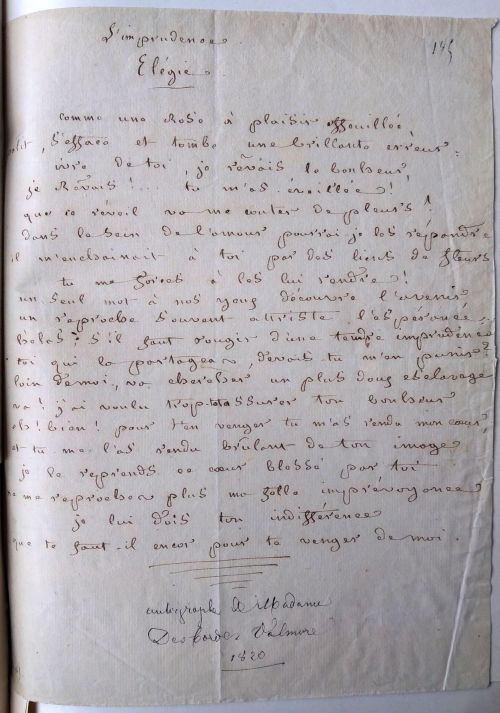 L'imprudence
195
Elégie.
comme une Rose à plaisir effeuillée,
pâlit, s'efface et tombe une brillante erreur :
ivre de toi, je rêvais le bonheur,
je Rêvais !... tu m'as éveillée !
que ce réveil va me couter de pleurs !
dans le sein de l'amour pourrai-je les répandre
il m'enchainait à toi par des liens de fleurs
tu me forces à les lui rendre !
un seul mot à nos yeux découvre l'avenir
un reproche souvent attriste l'espérance
hélas ! s'il faut rougir d'une tendre imprudence
toi qui la partageas, devais-tu m'en punir ?
loin de moi, va chercher un plus doux esclavage
va ! j'ai voulu trop assurer ton bonheur
eh ! bien ! pour t'en venger tu m'as rendu mon cœur,
et tu me l'as rendu brûlant de ton image
je le reprends ce cœur blessé par toi
ne me reproches plus ma folle imprévoyance
je lui dois ton indifférence
que te faut-il encor pour te venger de moi.
autographe de Madame
Desbordes Valmore
1820